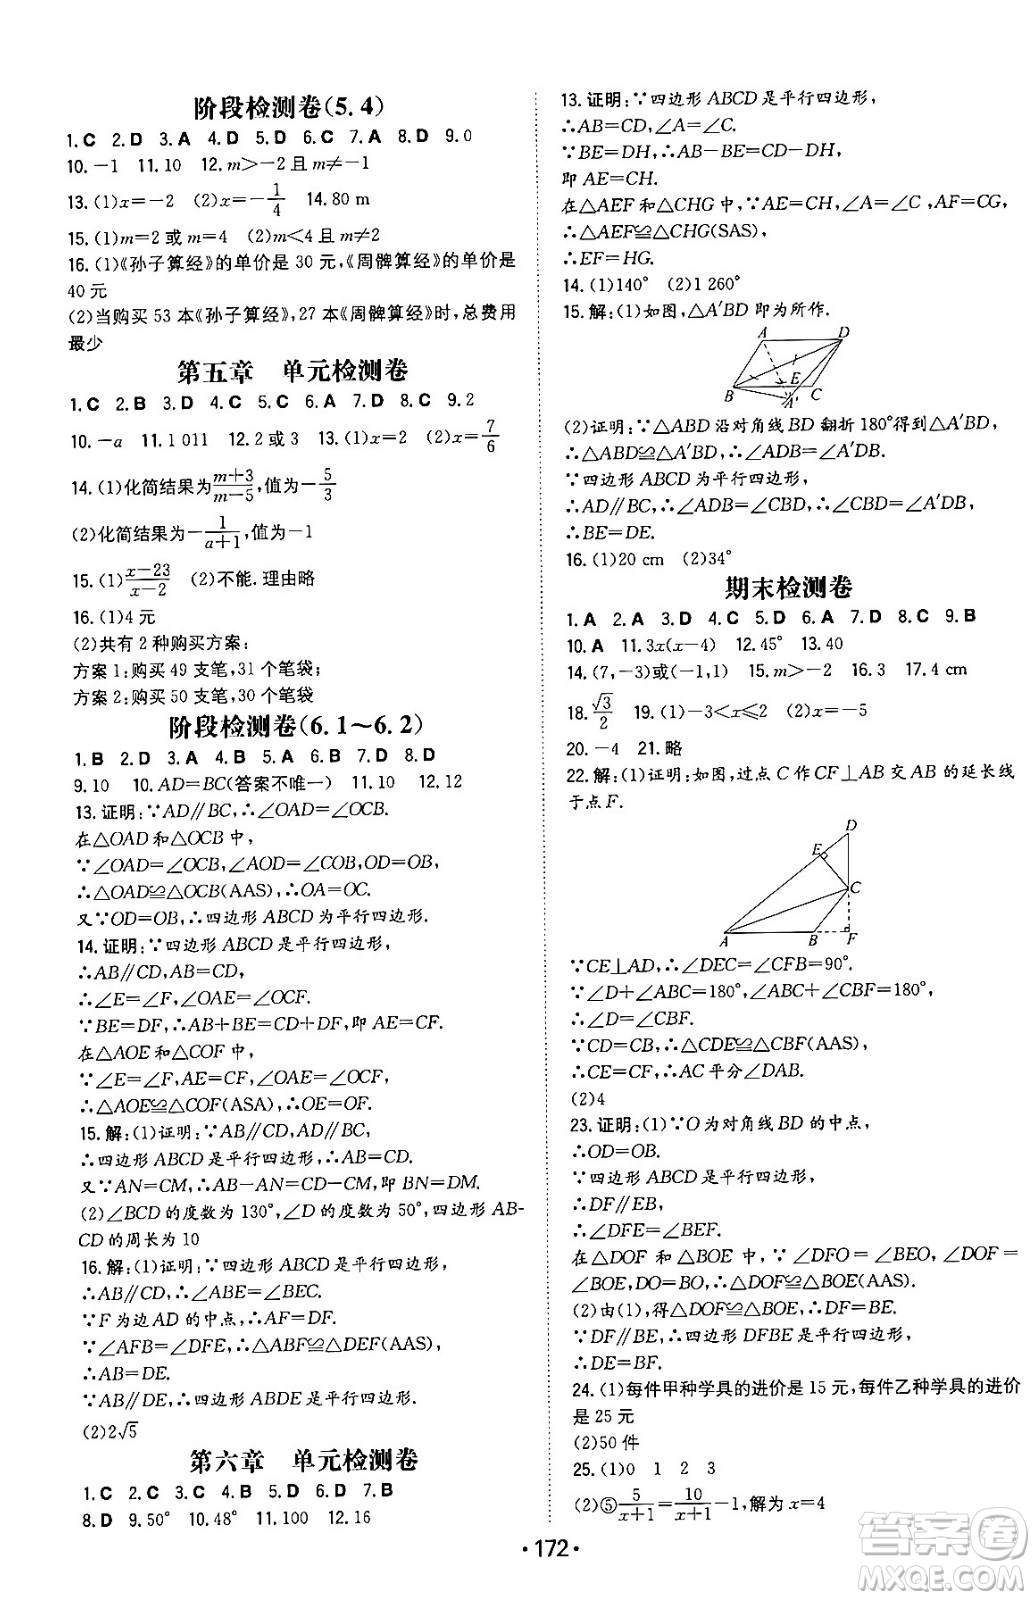 阶段检测卷(5.4)
1.C 2.D 3.A 4.D 5.D 6.C 7.A 8.D 9.0
10.－1 11.10 12.m＞－2且m≠－1
13.(1)x＝－2 (2)x＝－1/4 14.80 m
15.(1)m＝2或m＝4 (2)m＜4且m≠2
16.(1)《孙子算经》的单价是30元,《周髀算经》的单价是
40元
(2)当购买53本《孙子算经》,27本《周髀算经》时,总费用
最少
第五章 单元检测卷
1.C 2.B 3.D 4.C 5.C 6.A 7.D 8.C 9.2
10.－a 11.1 011 12.2或3 13.(1)x＝2 (2)x＝7/6
14.(1)化简结果为(m＋3)/(m－5),值为－5/3
(2)化简结果为－1/(a＋1),值为－1
15.(1)(x－23)/(x－2) (2)不能.理由略
16.(1)4元
(2)共有2种购买方案:
方案1:购买49支笔,31个笔袋;
方案2:购买50支笔,30个笔袋
阶段检测卷(6.1～6.2)
1.B 2.D 3.A 4.B 5.A 6.B 7.D 8.D
9.10 10.AD＝BC(答案不唯一) 11.10 12.12
13.证明:∵AD∥BC,∴∠OAD＝∠OCB.
在△OAD和△OCB中,
∵∠OAD＝∠OCB,∠AOD＝∠COB,OD＝OB,
∴△OAD≌△OCB(AAS),∴OA＝OC.
又∵OD＝OB,∴四边形ABCD为平行四边形.
14.证明:∵四边形ABCD是平行四边形,
∴AB∥CD,AB＝CD,
∴∠E＝∠F,∠OAE＝∠OCF.
∵BE＝DF,∴AB＋BE＝CD＋DF,即AE＝CF.
在△AOE和△COF中,
∵∠E＝∠F,AE＝CF,∠OAE＝∠OCF,
∴△AOE≌△COF(ASA),∴OE＝OF.
15.解:(1)证明:∵AB∥CD,AD∥BC,
∴四边形ABCD是平行四边形,∴AD＝BC.
又∵AN＝CM,∴AD－AN＝BC－CM,即BM＝DN.
(2)∠BCD的度数为130°,∠D的度数为50°,四边形AB-
CD的周长为10
16.解:(1)证明:∵四边形ABCD是平行四边形,
∴AB∥CD,∴∠ABE＝∠BEC.
∵F为边AD的中点,∴AF＝DF.
∵∠AFB＝∠DFE,∴△ABF≌△DEF(AAS),
∴AB＝DE.
∴AB∥DE,∴四边形ABDE是平行四边形.
(2)2√5
第六章 单元检测卷
1.C 2.C 3.C 4.B 5.D 6.D 7.B
8.D 9.50° 10.48° 11.100 12.16
13.证明:∵四边形ABCD是平行四边形,
∴AB＝CD,∠A＝∠C.
∵BE＝DH,∴AB－BE＝CD－DH,
即AE＝CH.
在△AEF和△CHG中,∵AE＝CH,∠A＝∠C,AF＝CG,
∴△AEF≌△CHG(SAS),
∴EF＝HG.
14.(1)140° (2)1 260°
15.解:(1)如图,△A′BD即为所作.
A D
E
B A′ C
(2)证明:∵△ABD沿对角线BD翻折180°得到△A′BD,
∴△ABD≌△A′BD,∴∠ADB＝∠A′DB.
∵四边形ABCD为平行四边形,
∴AD∥BC,∴∠ADB＝∠CBD,∴∠CBD＝∠A′DB,
∴BE＝DE.
16.(1)20 cm (2)34°
期末检测卷
1.A 2.A 3.D 4.C 5.D 6.A 7.D 8.C 9.B
10.A 11.3x(x－4) 12.45° 13.40
14.(7,－3)或(－1,1) 15.m＞－2 16.3 17.4 cm
18.√3/2 19.(1)－3＜x≤2 (2)x＝－5
20.－4 21.略
22.解:(1)证明:如图,过点C作CF⊥AB交AB的延长线
于点F.
D
E
C
A B F
∵CE⊥AD,∴∠DEC＝∠CFB＝90°.
∵∠D＋∠ABC＝180°,∠ABC＋∠CBF＝180°,
∴∠D＝∠CBF.
∵CD＝CB,∴△CDE≌△CBF(AAS),
∴CE＝CF,∴AC平分∠DAB.
(2)4
23.证明:(1)∵O为对角线BD的中点,
∴OD＝OB.
∵四边形ABCD是平行四边形,
∴DF∥EB,
∴∠DFE＝∠BEF.
在△DOF和△BOE中,∵∠DFO＝∠BEO,∠DOF＝
∠BOE,DO＝BO,∴△DOF≌△BOE(AAS).
(2)由(1),得△DOF≌△BOE,∴DF＝BE.
∵DF∥BE,∴四边形DFBE是平行四边形,
∴DE＝BF.
24.(1)每件甲种学具的进价是15元,每件乙种学具的进价
是25元
(2)50件
25.(1)0 1 2 3
(2)⑤5/(x＋1)＝10/(x＋1)－1,解为x＝4
·172·
答案圈
MXQE.COM